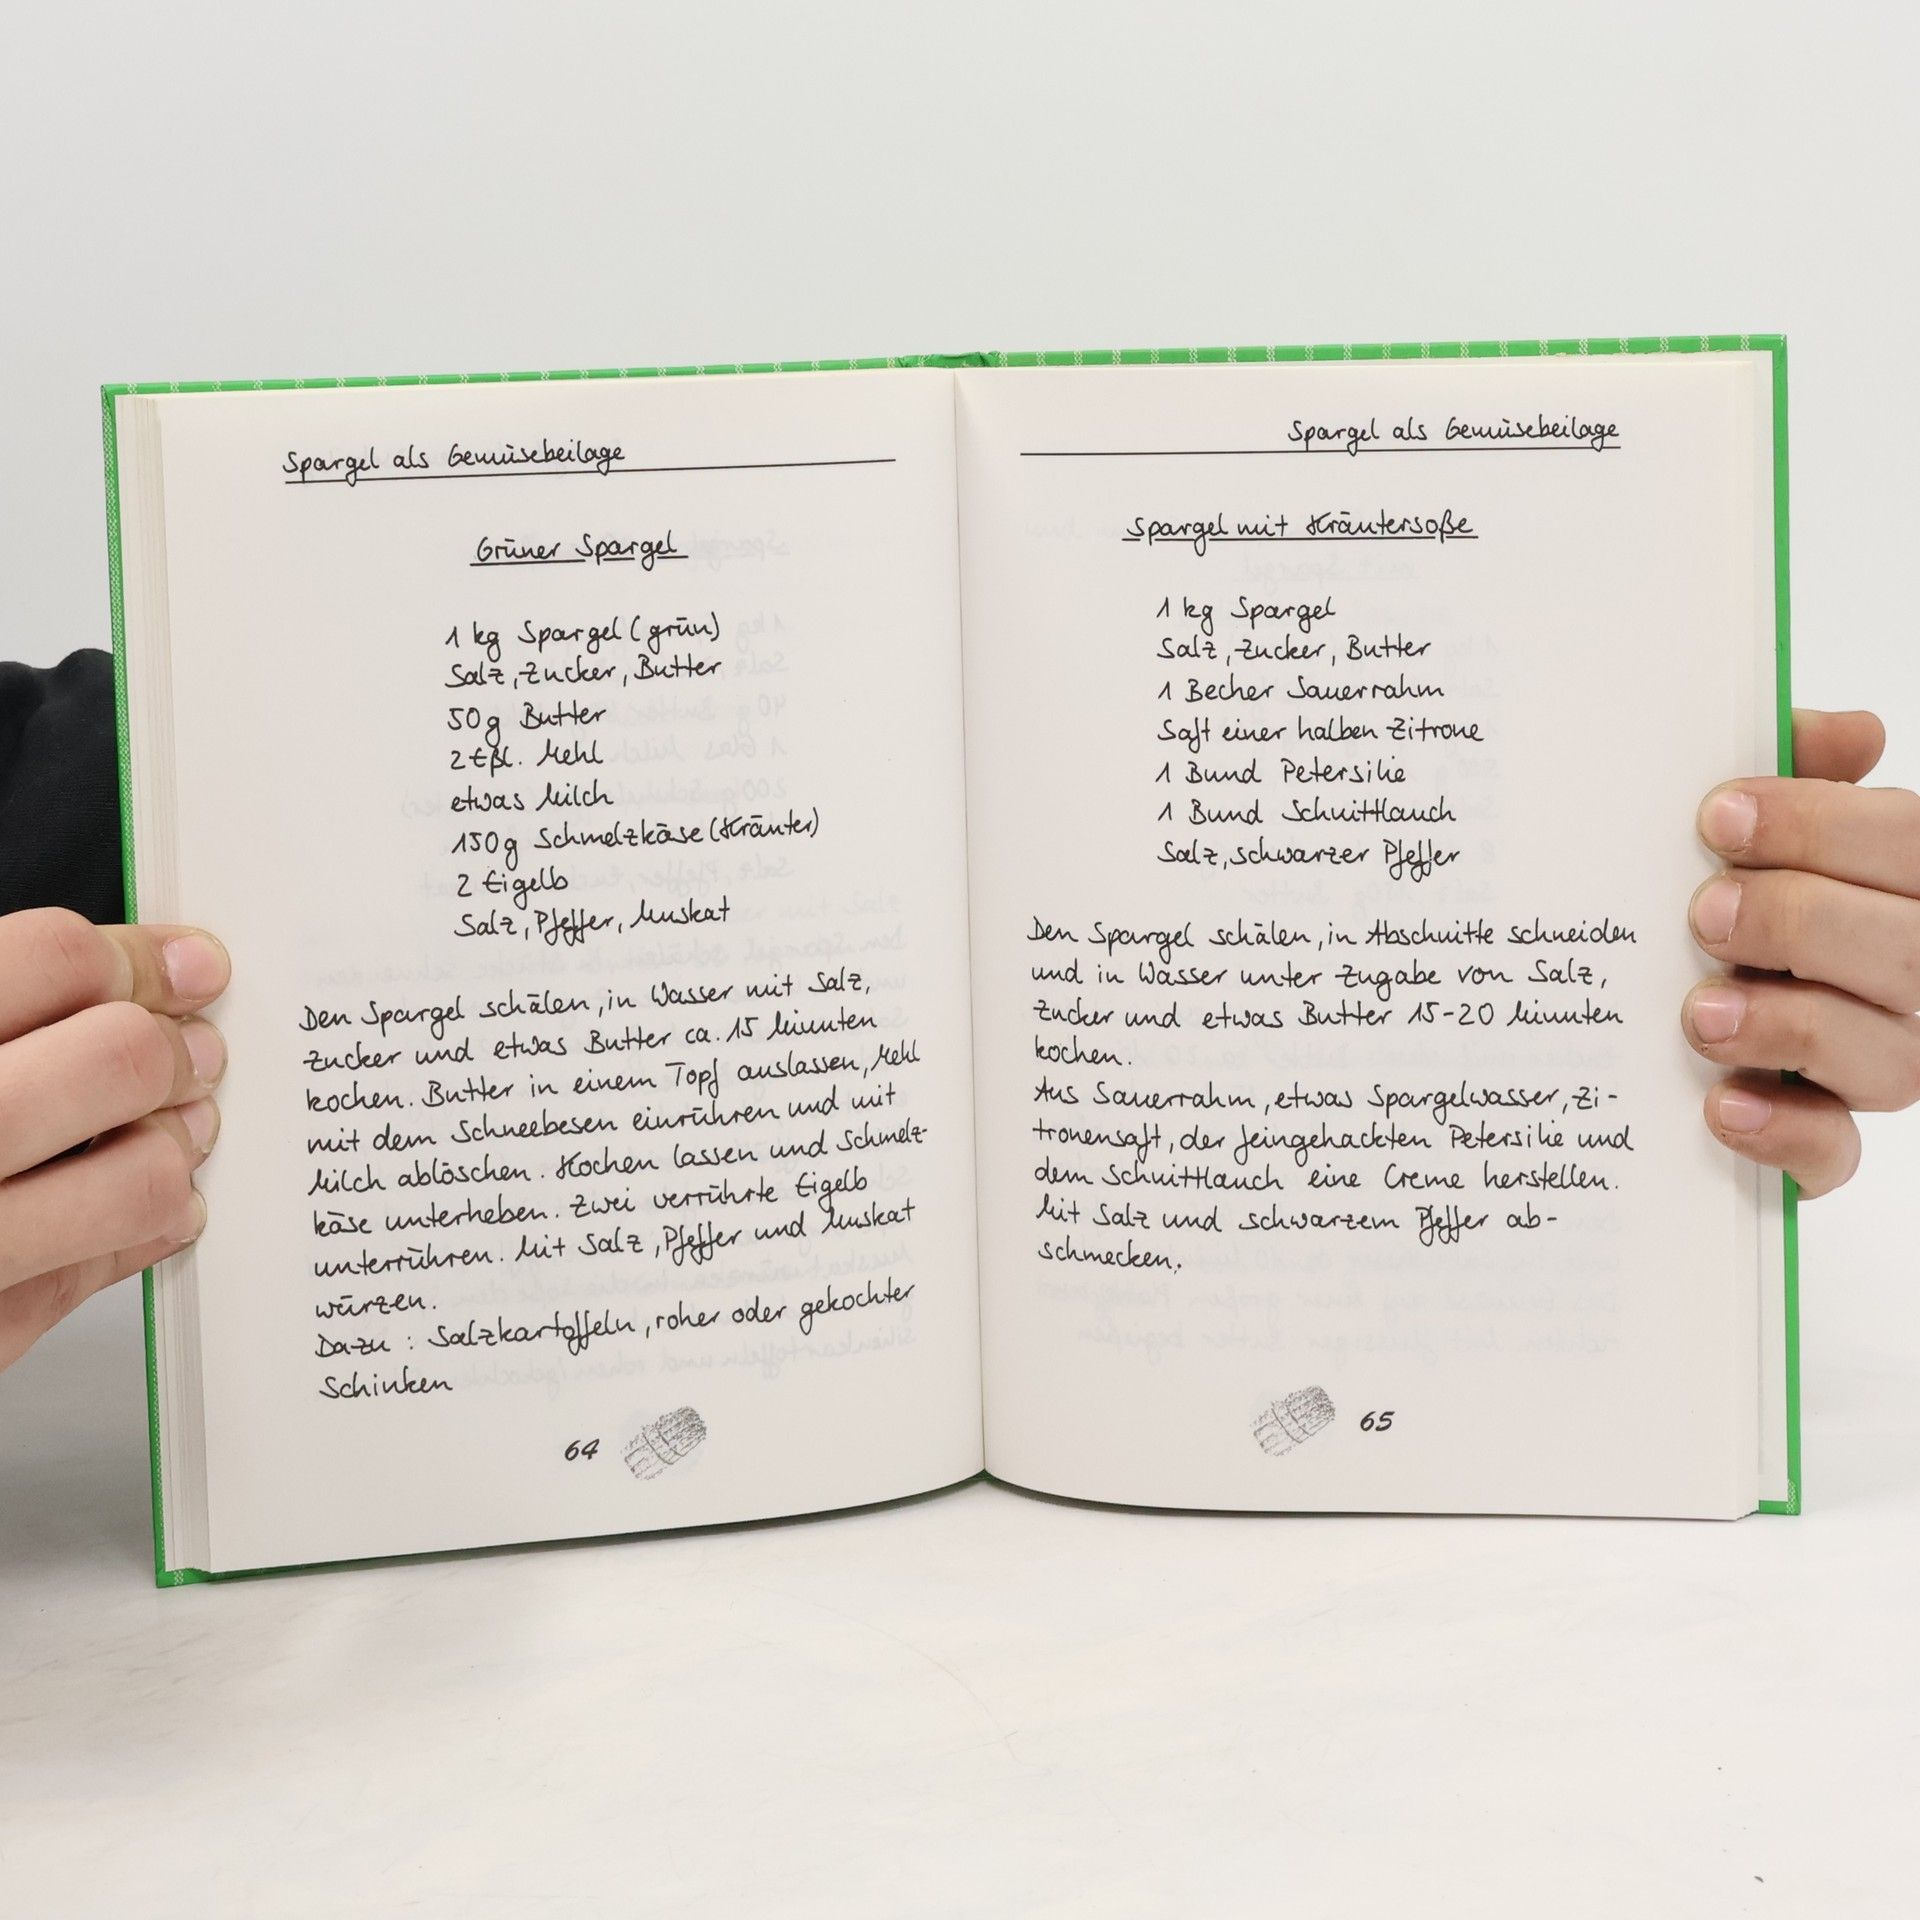 Spargel als Gemüsebeilage
Grüner Spargel
1 kg Spargel (grün)
Salz, Zucker, Butter
50g Butter
2 Eßl. Mehl
etwas Milch
150g Schmelzkäse (Kräuter)
2 Eigelb
Salz, Pfeffer, Muskat
Den Spargel schälen, in Wasser mit Salz,
Zucker und etwas Butter ca. 15 Minuten
kochen. Butter in einem Topf auslassen, Mehl
mit dem Schneebesen einrühren und mit
Milch ablöschen. Kochen lassen und Schmelz-
käse unterheben. Zwei verrührte Eigelb
unterrühren. Mit Salz, Pfeffer und Muskat
würzen.
Dazu: Salzkartoffeln, roher oder gekochter
Schinken
64
Spargel als Gemüsebeilage
Spargel mit Kräutersoße
1 kg Spargel
Salz, Zucker, Butter
1 Becher Sauerrahm
Saft einer halben Zitrone
1 Bund Petersilie
1 Bund Schnittlauch
Salz, schwarzer Pfeffer
Den Spargel schälen, in Abschnitte schneiden
und in Wasser unter Zugabe von Salz,
Zucker und etwas Butter 15-20 Minuten
kochen.
Aus Sauerrahm, etwas Spargelwasser, Zi-
tronensaft, der feingehackten Petersilie und
dem Schnittlauch eine Creme herstellen.
Mit Salz und schwarzem Pfeffer ab-
schmecken.
65